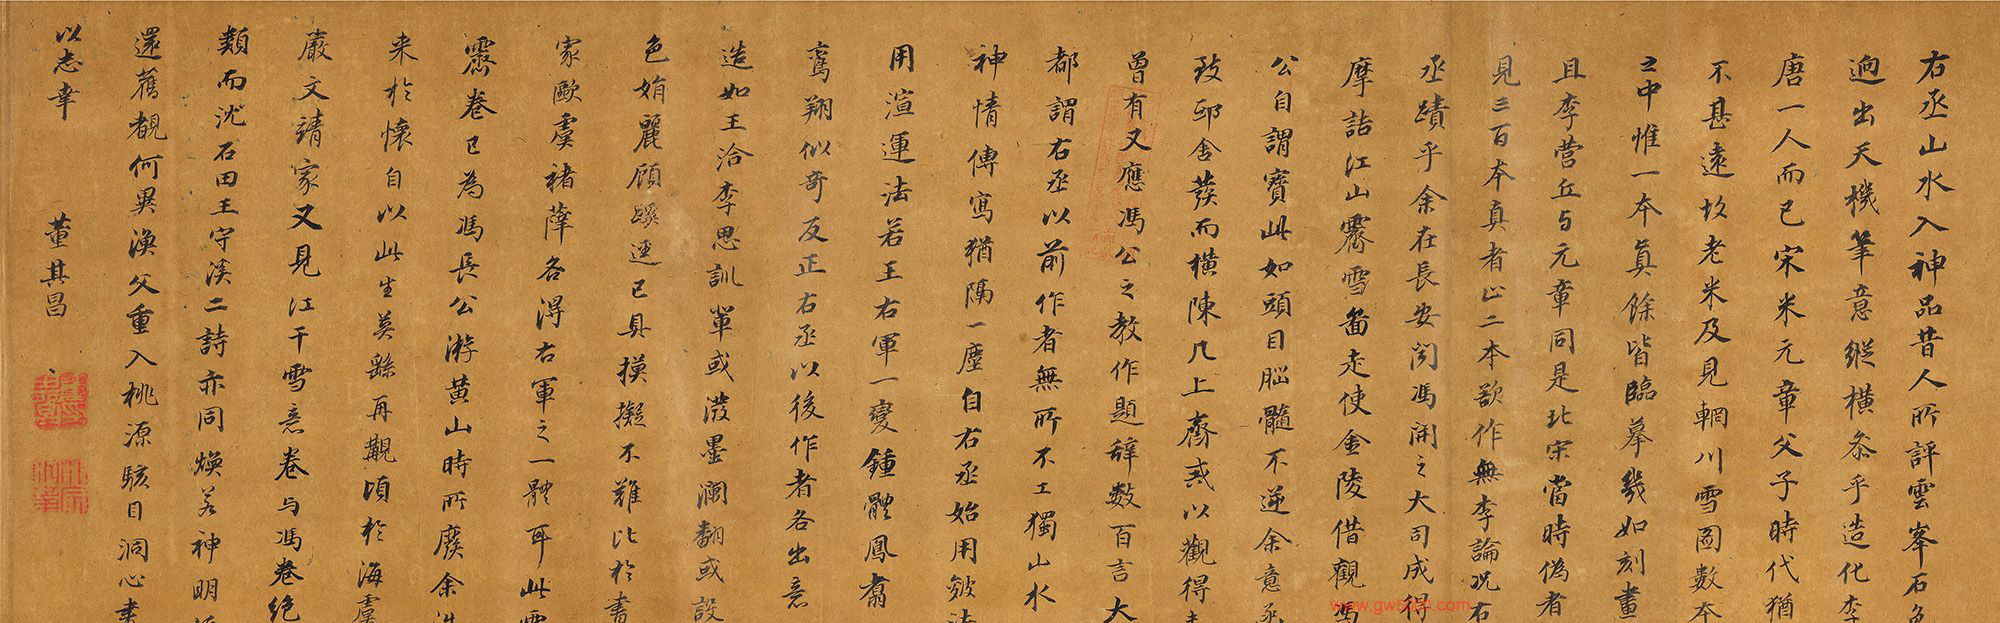 右丞山水入神品昔人所評雲峯石色
迥出天機筆意縱橫叅乎造化李
唐一人而已宋米元章父子時代猶
不甚遠故老米及見輞川雪圖數本
之中惟一本真餘皆臨摹幾如刻畫
且李營丘与元章同是北宋當時偽者
見三百本真者止二本欲作無李論况右
丞蹟乎余在長安聞馮開之大司成得
摩詰江山霽雪圖走使金陵借觀馮
公自謂寶此如頭目腦髓不逆余意
致郵舍發而橫陳几上齋戒以觀得
曾有又應馮公之教作題辭數百言大
都謂右丞以前作者無所不工獨山水
神情傳寫猶隔一塵自右丞始用皴法
用渲運法若王右軍一變鍾體鳳翥
鸞翔似奇反正右丞以後作者各出意
造如王洽李思訓輩或潑墨瀾翻或設
色娟麗顧蹊逕已具摸擬不難比於書
家歐虞褚薛各得右軍之一體耳此雪
霽卷已為馮長公游黃山時所廢余
来於懷自以此生莫繇再觀頃於海虞
嚴文靖家又見江干雪意卷与馮卷絕
類而沈石田王守溪二詩亦同煥若神明
還舊觀何異漁父重入桃源駭目洞心書
以志幸
董其昌
www.gw8090.com